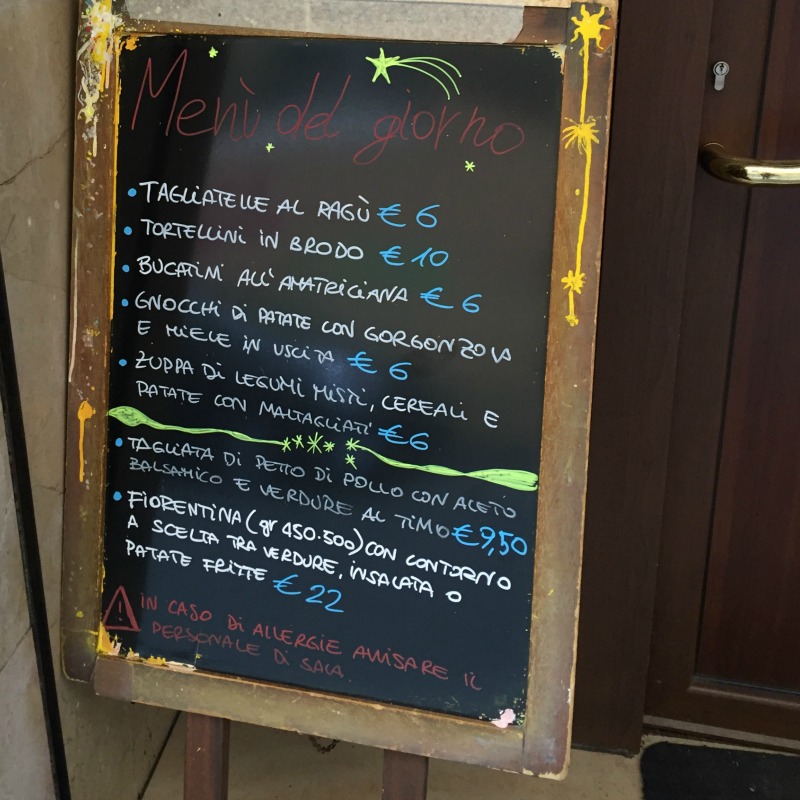 Menù del giorno
• TAGLIATELLE AL RAGÙ € 6
• TORTELLINI IN BRODO € 10
• BUCATINI ALL'AMATRICIANA € 6
• GNOCCHI DI PATATE CON GORGONZOLA
E MIELE IN USCITA € 6
• ZUPPA DI LEGUMI MISTI, CEREALI E
PATATE CON MALTAGLIATI € 6
• TAGLIATA DI PETTO DI POLLO CON ACETO
BALSAMICO E VERDURE AL TIMO € 9,50
• FIORENTINA (gr 450-500) CON CONTORNO
A SCELTA TRA VERDURE, INSALATA O
PATATE FRITTE € 22
IN CASO DI ALLERGIE AVVISARE IL
PERSONALE DI SALA